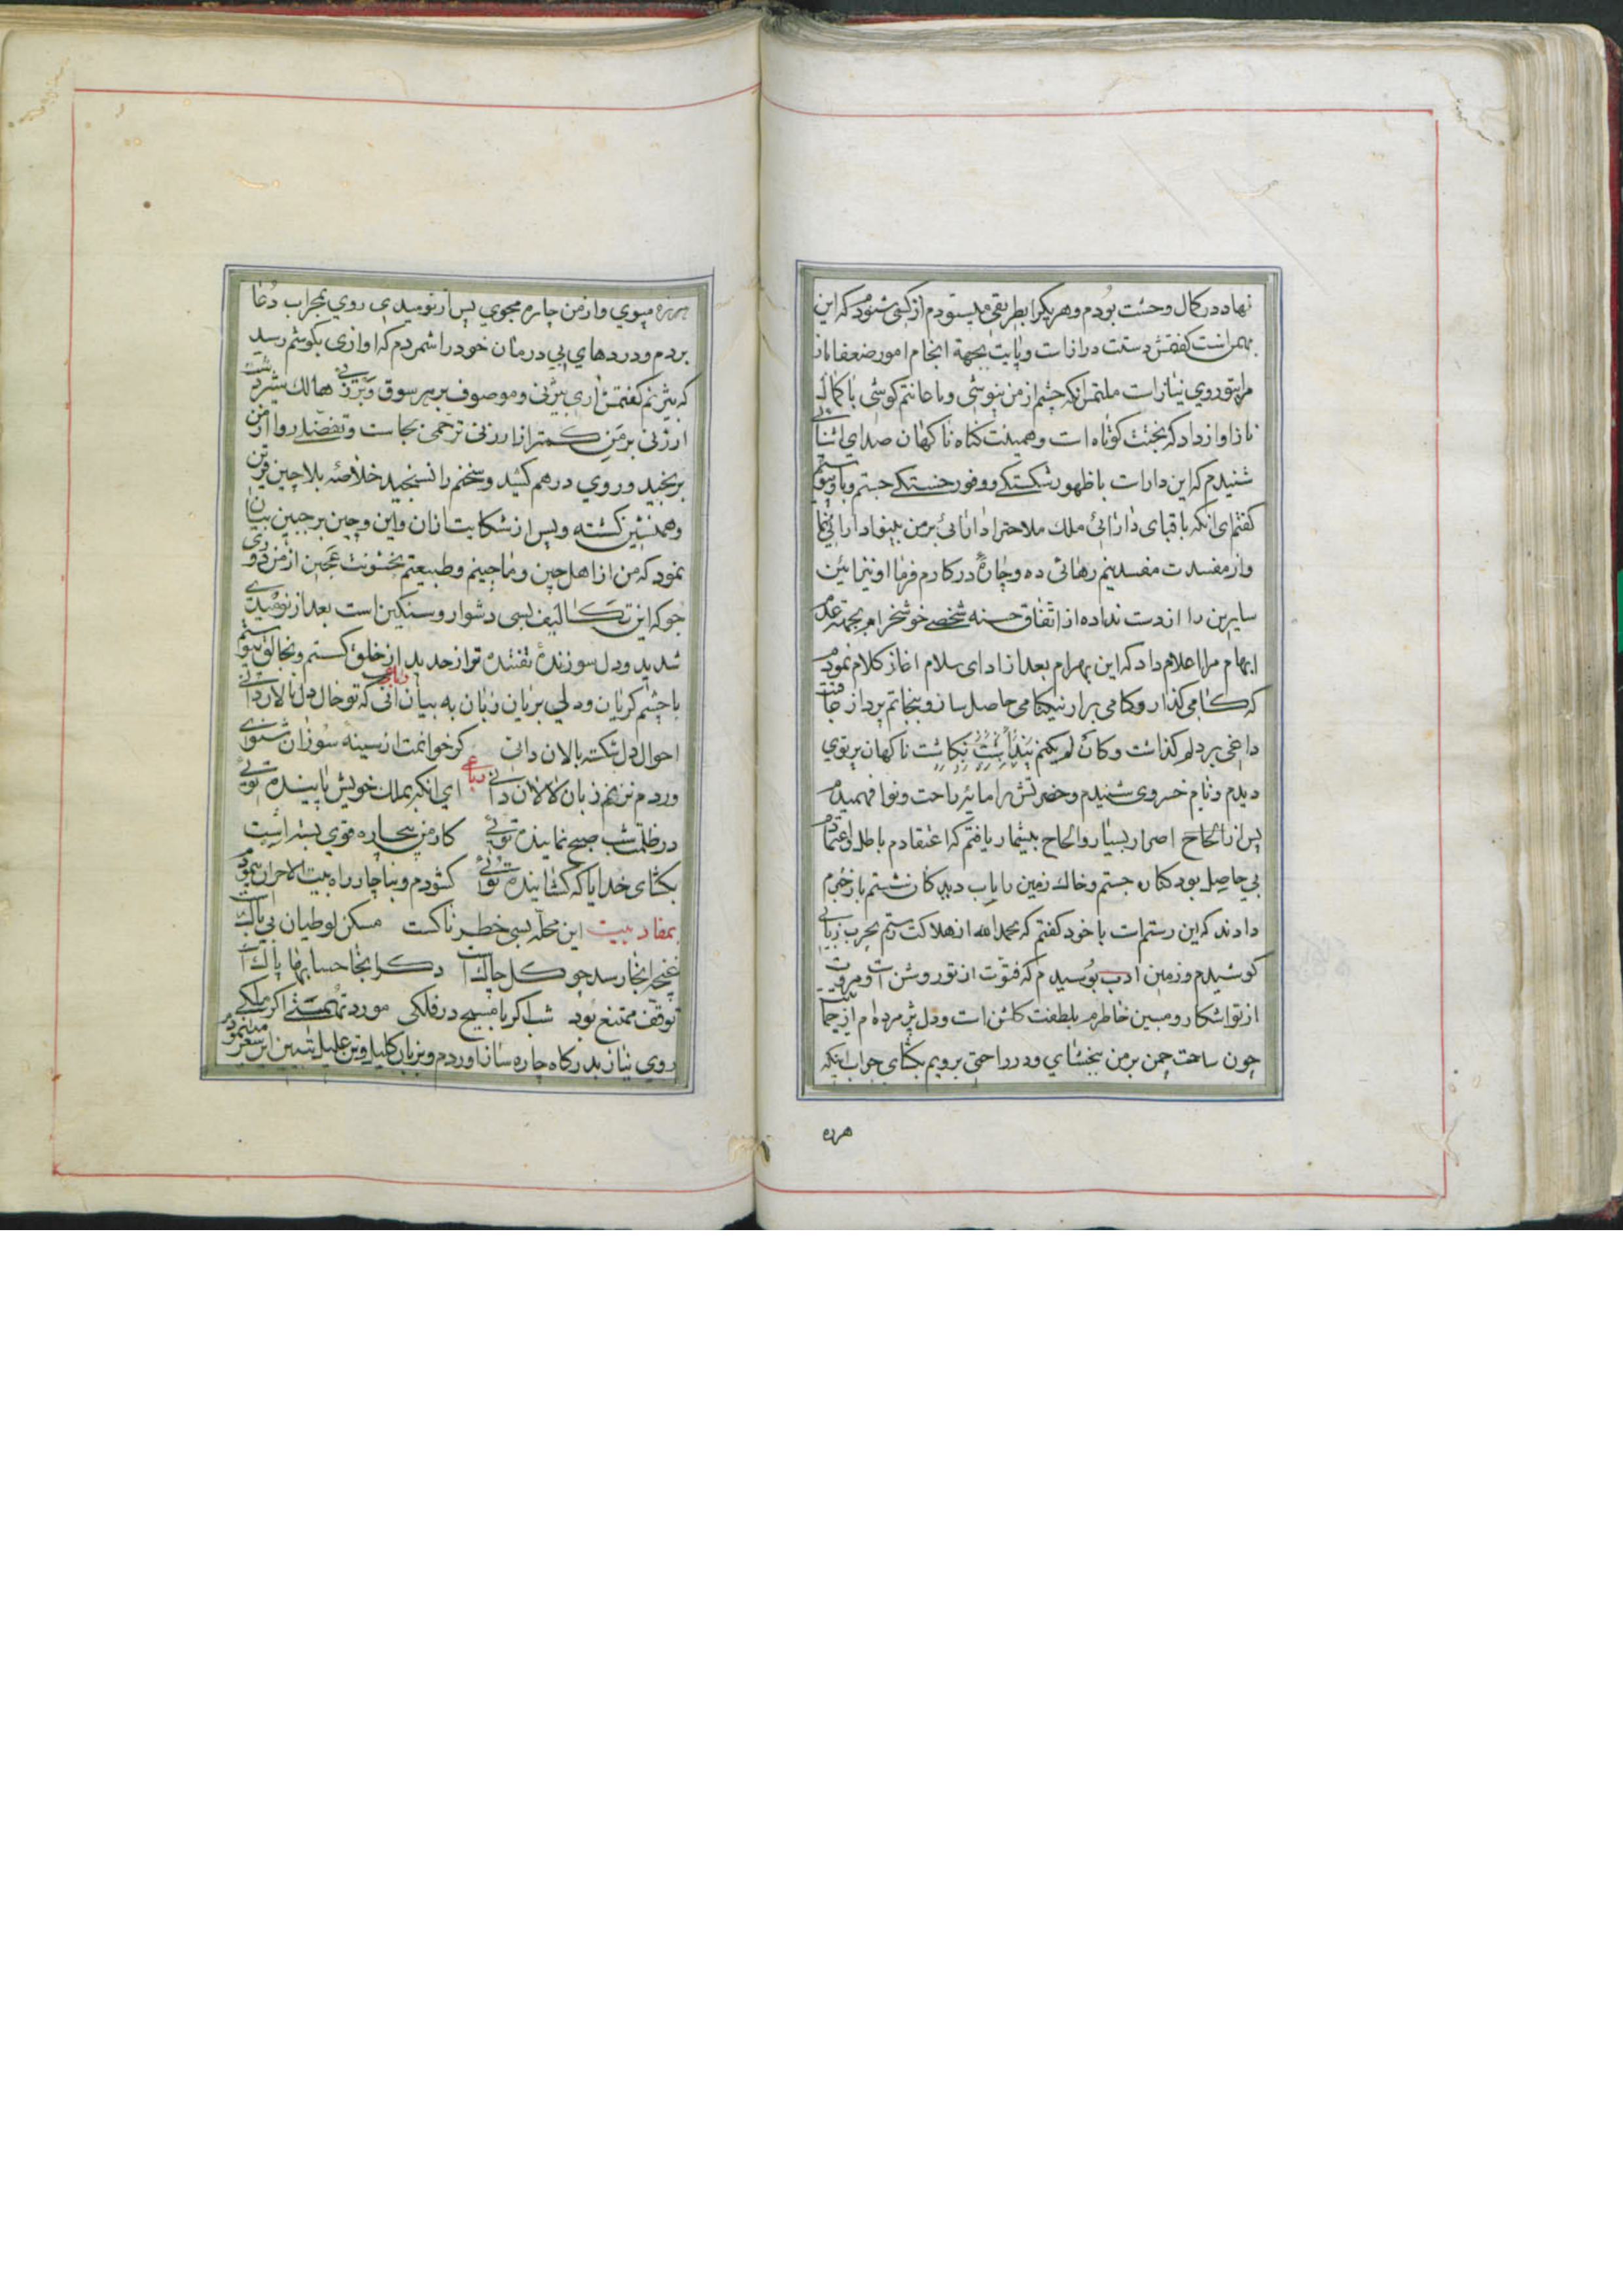 نهاد در کمال وحشت بودم و هر یکرا بطریقی میستودم از کسی شنودم که این
بهمن است کفتمش دستت دراز است و پایت بجهة انجام امور ضعفا باز
مرا بتو روی نیاز است ملتمس انکه چشم از من نپوشی و باعانتم کوشی با کمال
ناز اواز داد که بختت کوتاه است و همینت کناه ناکهان صدای اشنائی
شنیدم که این دارات با ظهور شکستکی و وفور خستکی جستم و باو پیوستم
کفتم ای انکه با قبای دارائی ملک ملاحترا دارائی بر من بینوا دارائی نما
و از مفسدت مفسدینم رهائی ده و چارهٔ در کارم فرما او نیز مابین
سایرین را از دست نداده از اتفاق حسنه شخصی خوشخرام بجهة عدم
ابهام مرا اعلام داد که این بهرام بعد از ادای سلام اغاز کلام نمودم
که کامی کذار و کامی برار نیکنامی حاصل ساز و بنجاتم پرداز
داغی بر دلم کذاشت و کان لم یکنم پنداشت ناکهان پرتوی
دیدم و نام خسروی شنیدم و حضرتش را مایه راحت و نوا فهمیدم
پس از الحاح اصرار بسیار و الحاح بیشمار یافتم که اعتقادم باطل و اعتمادم
بی حاصل بود کناره جستم و خاک زمین را باب دیدکان شستم باز خبرم
دادند که این رستم است با خود کفتم که بحمد الله از هلاکت رستم بچرب زبانی
کوشیدم و زمین ادب بوسیدم که فتوت از تو روشن است و مروت
از تو اشکار و مبین خاطرم بلطفت کلشن است و دل پژمرده ام از
چون ساحت چمن بر من ببخشای و در راحتی برویم بکشای جواب اینکه
هرزه
هرزه مپوی و از من چاره مجوی پس از نومیدی روی بمحراب دعا
بردم و دردهای بی درمان خود را شمردم که اوازی بکوشم رسید
که بیژنم کفتمش اری بیژنی و موصوف بر هر سوق و برزنی هالک
ارزنی بر من کمتر از ارزنی ترحمی بجاست و تفضلی روا از من
برنجید و روی درهم کشید و سخنم را نسنجید خلاصه بلا چین قرین
و همنشین کشته و پس از شکایت از ان و این و چین بر جبین بیان
نمود که من از اهل چین و ماچینم و طبیعتم بخشونت عجین از من دوری
جو که این تکالیف بسی دشوار و سنکین است بعد از نومیدی
شدید و دل سوزندهٔ تفتیده تر از حدید از خلق کسستم و بخالق پیوستم
با چشم کریان و دلی بریان زبان به بیان رباعی انی که تو حال دل نالان دانی
احوال دل شکسته بالان دانی کر خوانمت از سینه سوزان شنوی
ور دم نزنم زبان لالان دانی رباعی ای انکه بملک خویش پاینده توئی
در ظلمت شب صبح نماینده توئی کار من بیچاره قوی بسته است
بکشای خدایا که کشاینده توئی کشودم و بناچار راه بیت الاحزان پیمودم
بمفاد بیت این محله بسی خطرناکست مسکن لوطیان بی باک است
غنچه اینجا رسد چو کل چاک است دکر اینجا حسابها پاک است
توقف ممتنع بود شب اکر با مسیح در فلکی مورد تهمتی اکر ملکی
روی نیاز بدرکاه چاره ساز اوردم و بزبان کلیل و تن علیل